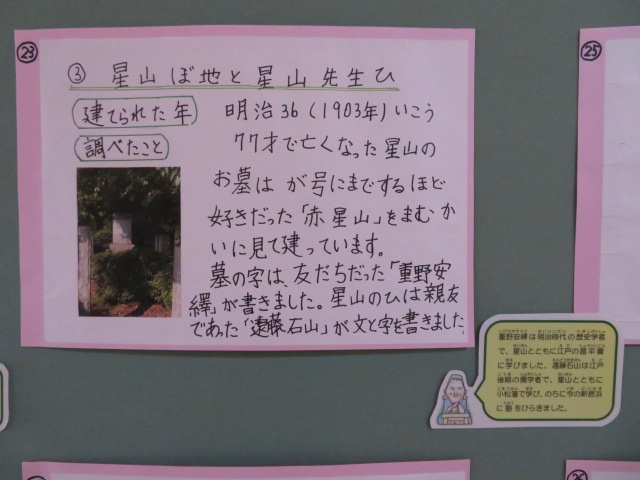 23
③ 星山ぼ地と星山先生ひ
建てられた年 明治36(1903年)いこう
調べたこと 77才で亡くなった星山の
お墓は が号にまでするほど
好きだった「赤星山」をまむか
いに見て建っています。
墓の字は、友だちだった「重野安
繹」が書きました。星山のひは親友
であった「遠藤石山」が文と字を書きました
25
重野安繹は明治時代の歴史学者
で、星山とともに江戸の昌平黌
に学びました。遠藤石山は江戸
後期の儒学者で、星山とともに
小松藩で学び、のちに今の新居浜
に塾をひらきました。